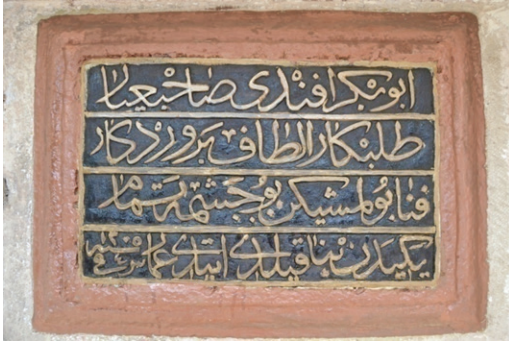 ابو بكر افندى صاحبعيار
طلبكار الطاف پروردكار
فنا بولمشيكن بو چشمه تمام
يكيدن بنا قيلدى ايتدى عمار